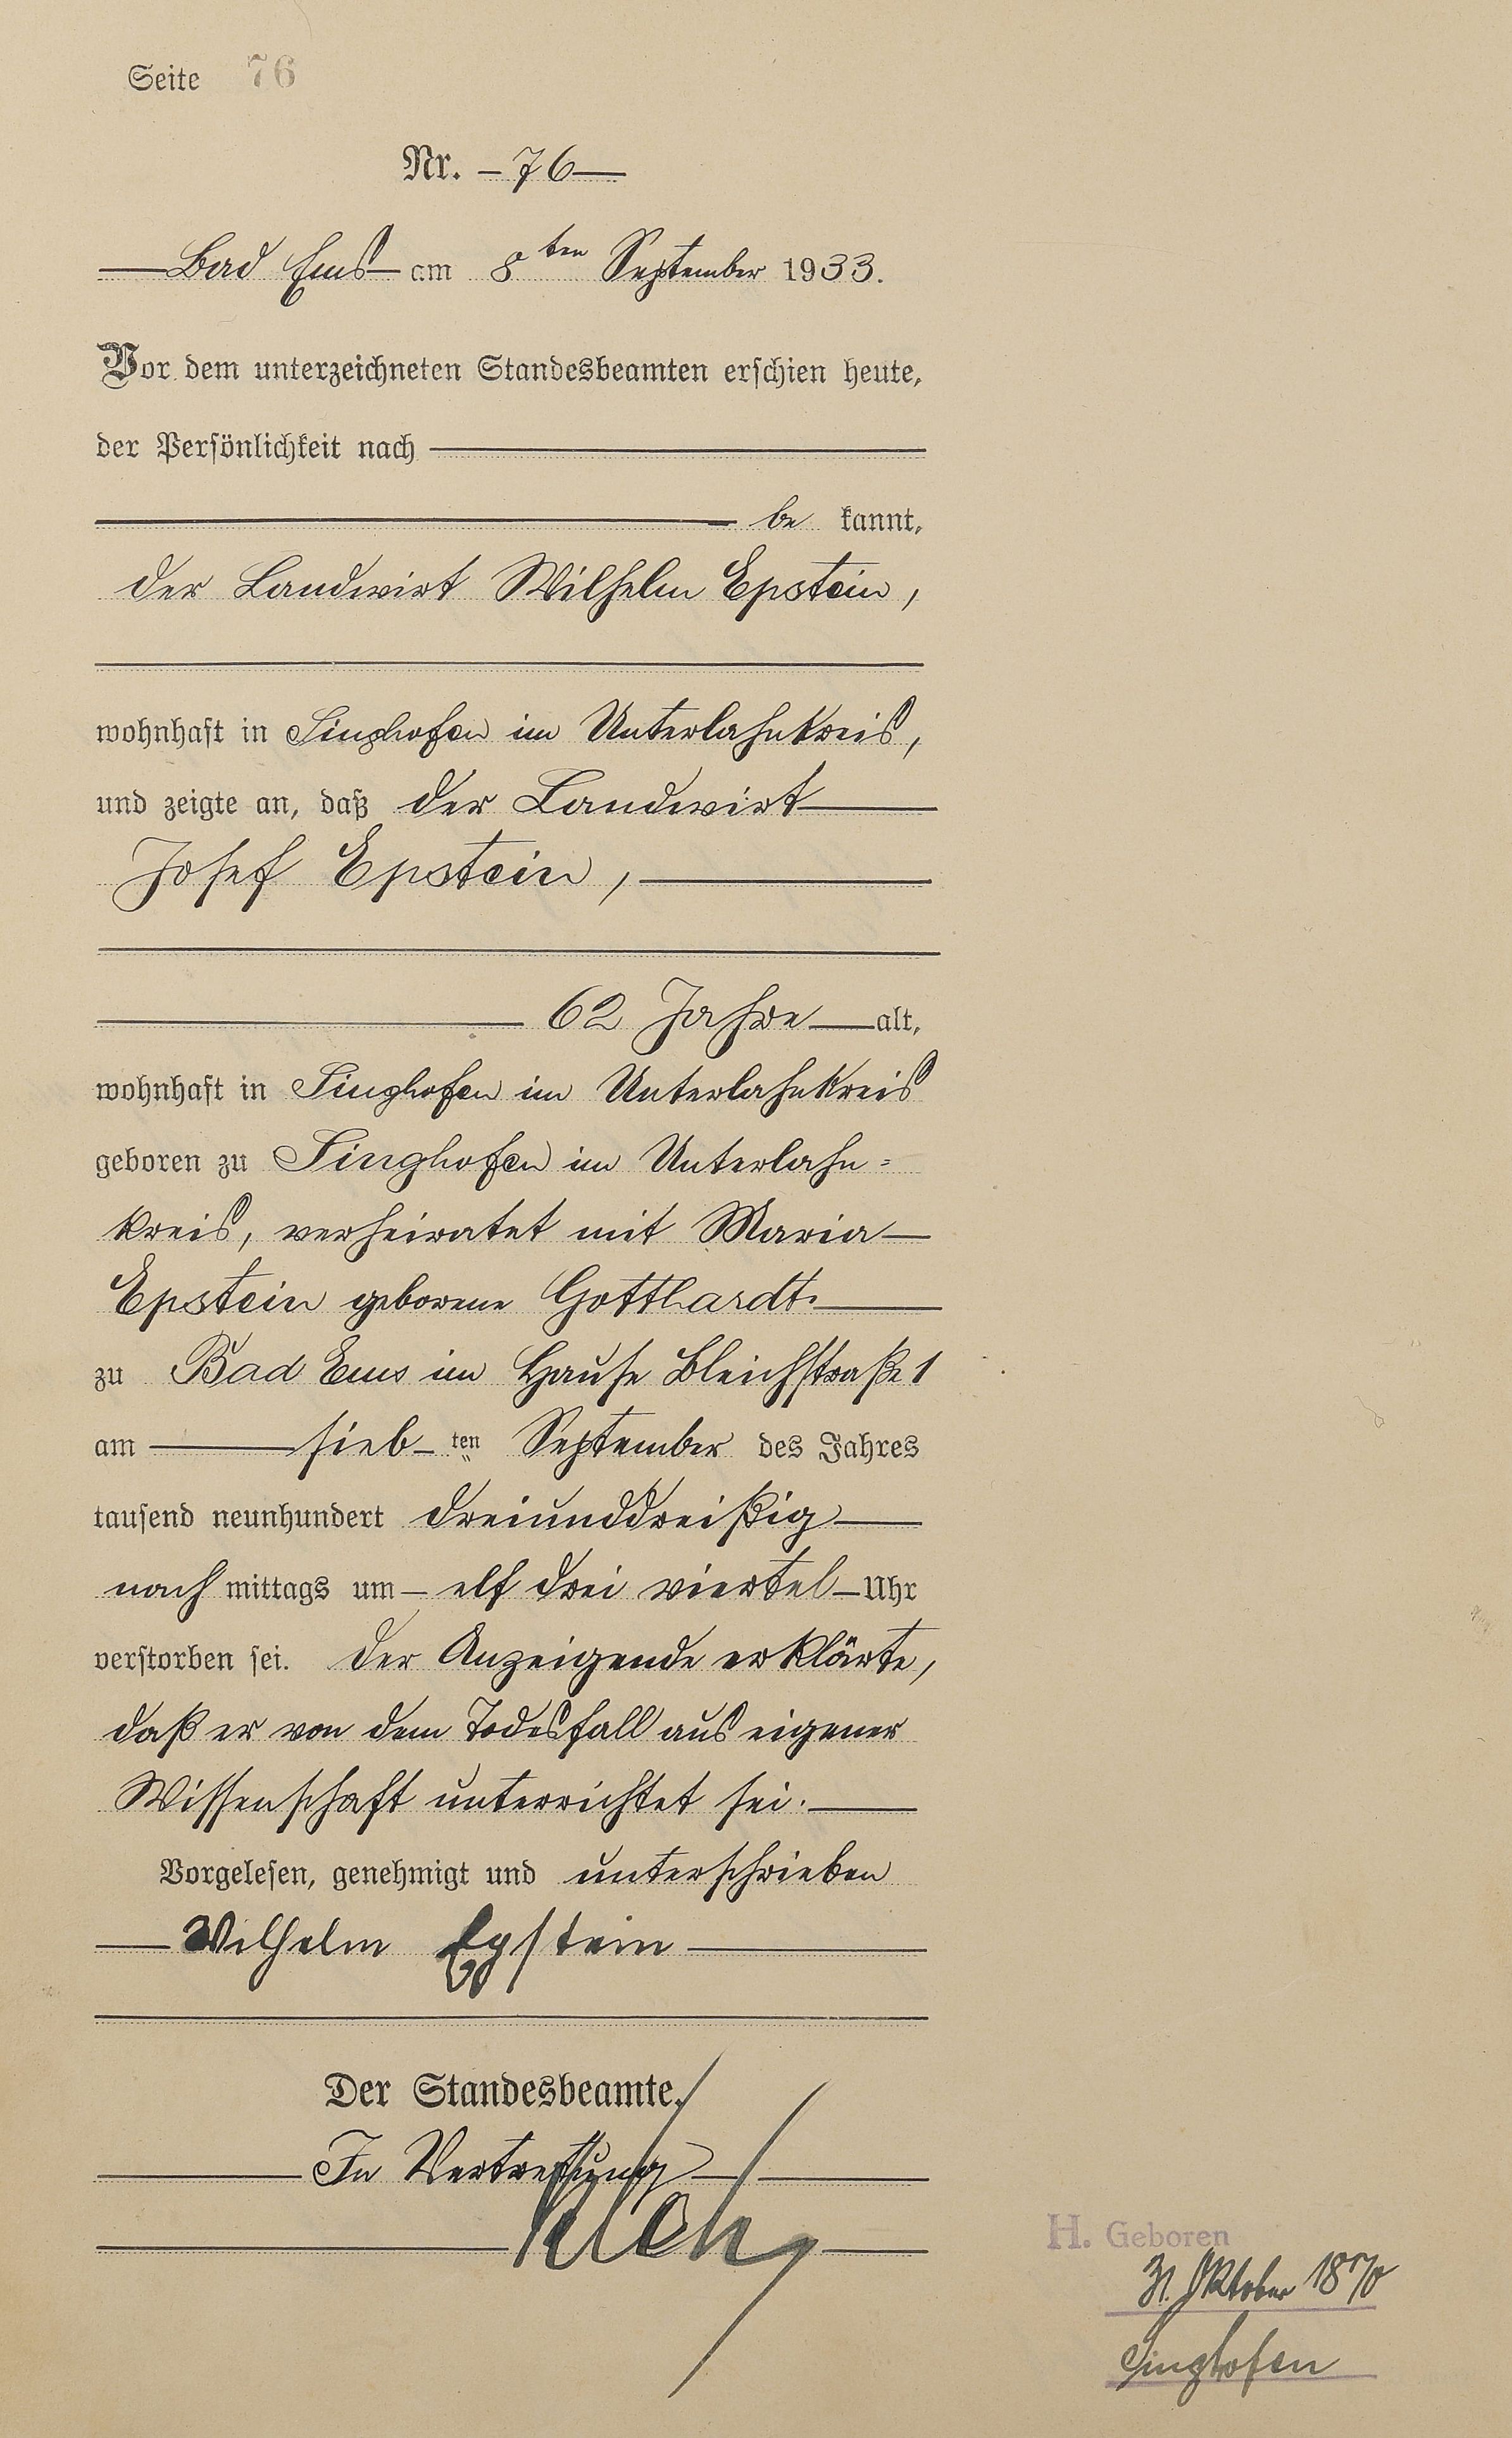 Seite 76
Nr. – 76 —
Bad Ems am 8ten September 1933.
Vor dem unterzeichneten Standesbeamten erschien heute,
der Persönlichkeit nach
be kannt,
der Landwirt Wilhelm Epstein,
wohnhaft in Singhofen im Unterlahnkreis,
und zeigte an, daß der Landwirt
Josef Epstein,
62 Jahre alt,
wohnhaft in Singhofen im Unterlahnkreis
geboren zu Singhofen im Unterlahn=
kreis, verheiratet mit Maria
Epstein geborene Gotthardt.
zu Bad Ems im Hause Bleichstraße 1
am sieb-ten September des Jahres
tausend neunhundert dreiunddreißig
nach mittags um – elf drei viertel – Uhr
verstorben sei. Der Anzeigende erklärte,
daß er von dem Todesfall aus eigener
Wissenschaft unterrichtet sei.
Vorgelesen, genehmigt und unterschrieben
Wilhelm Epstein
Der Standesbeamte.
In Vertretung
H. Geboren
31. Oktober 1870
Singhofen